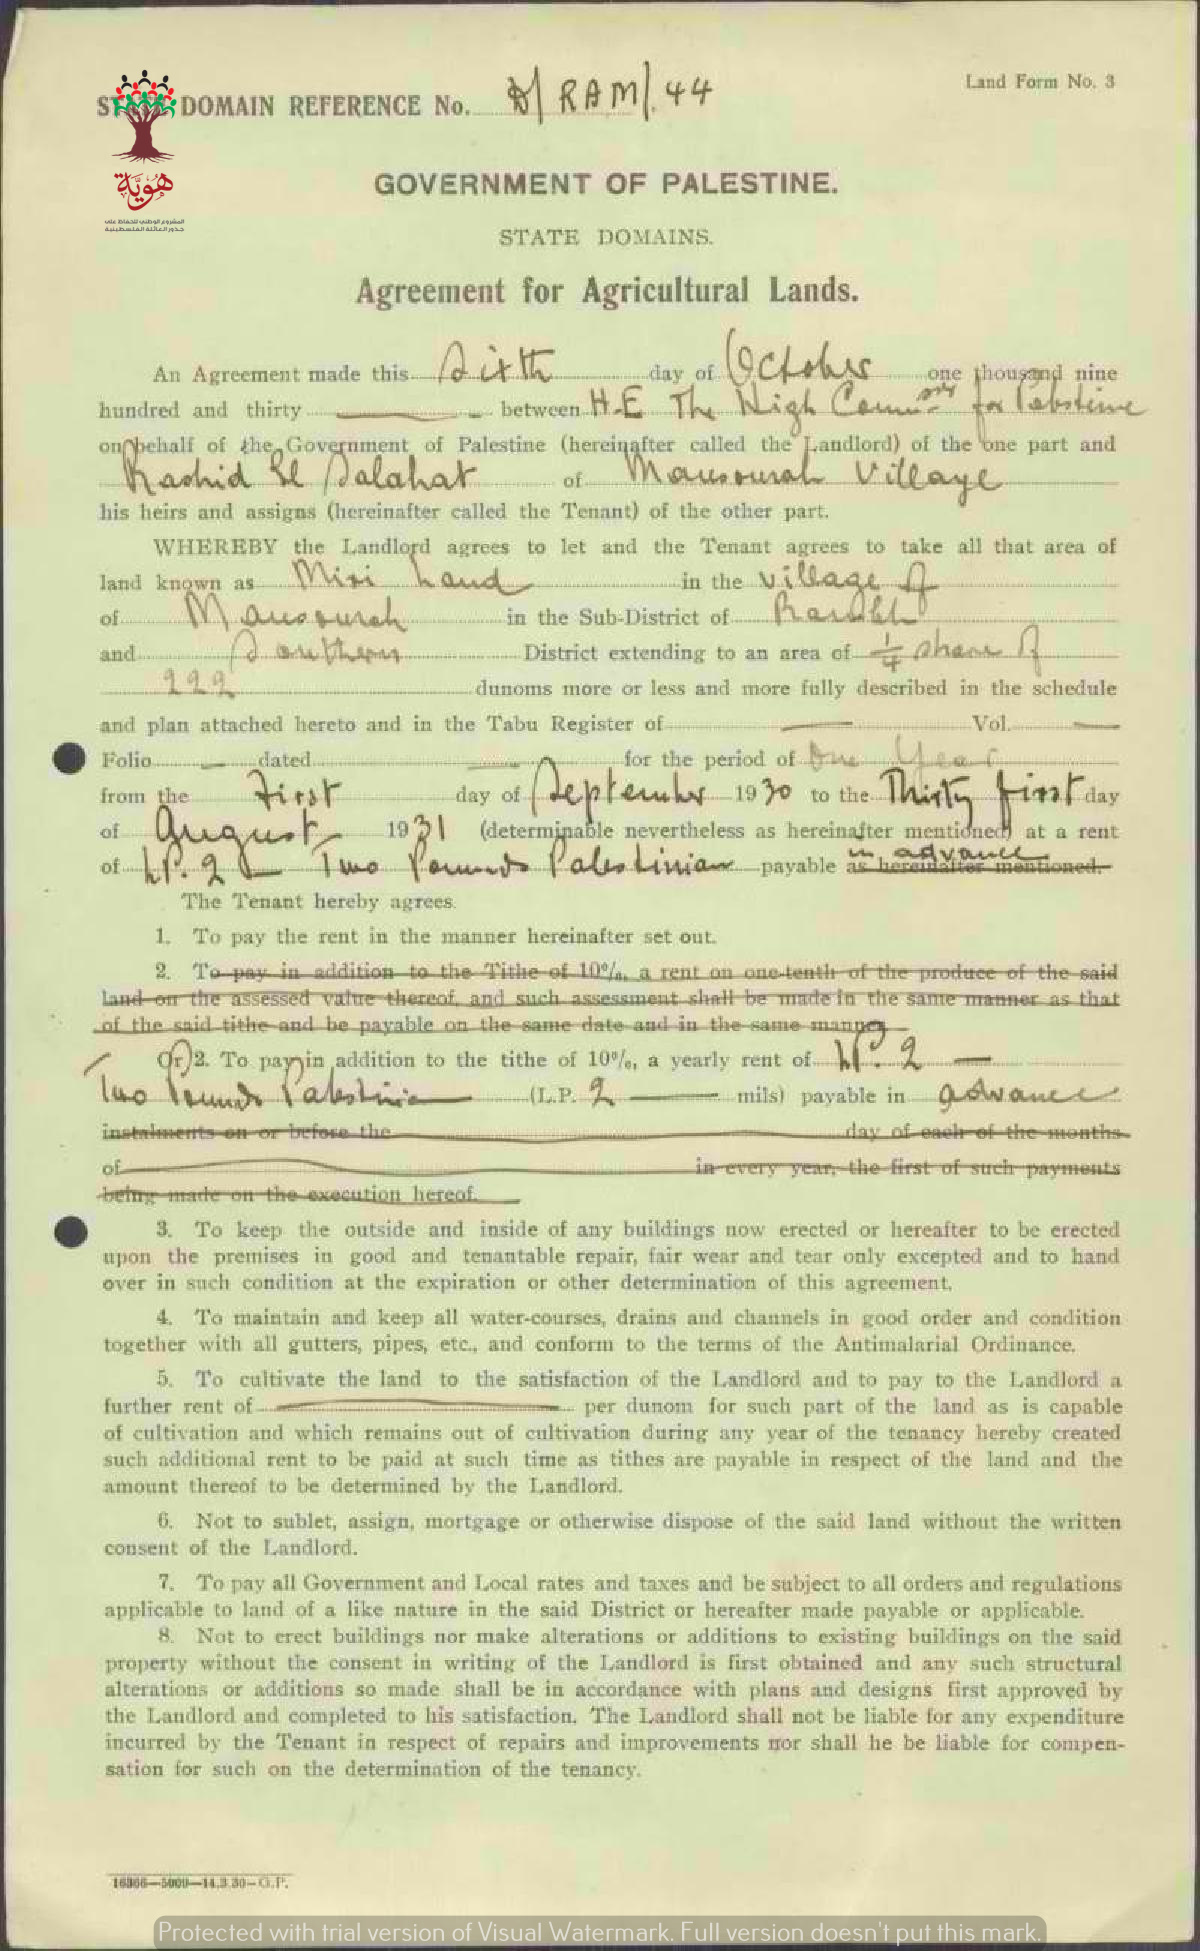 Land Form No. 3
STATE DOMAIN REFERENCE No. D/RAM/.44
هوية
المشروع الوطني للحفاظ على
جذور العائلة الفلسطينية
GOVERNMENT OF PALESTINE.
STATE DOMAINS.
Agreement for Agricultural Lands.
An Agreement made this Sixth day of October one thousand nine
hundred and thirty — between H.E The High Commsr for Palestine
on behalf of the Government of Palestine (hereinafter called the Landlord) of the one part and
Rashid El Salahat of Mansourah Village
his heirs and assigns (hereinafter called the Tenant) of the other part.
WHEREBY the Landlord agrees to let and the Tenant agrees to take all that area of
land known as Miri Land in the village of
of Mansourah in the Sub-District of Ramleh
and Southern District extending to an area of 1/4 share of
222 dunoms more or less and more fully described in the schedule
and plan attached hereto and in the Tabu Register of — Vol. —
Folio — dated — for the period of One Year
from the First day of September 1930 to the Thirty first day
of August 1931 (determinable nevertheless as hereinafter mentioned) at a rent
of LP. 2 — Two Pounds Palestinian payable as hereinafter mentioned. in advance
The Tenant hereby agrees.
1. To pay the rent in the manner hereinafter set out.
2. To pay in addition to the Tithe of 10%, a rent on one-tenth of the produce of the said
land on the assessed value thereof, and such assessment shall be made in the same manner as that
of the said tithe and be payable on the same date and in the same manner
Or) 2. To pay in addition to the tithe of 10%, a yearly rent of LP. 2 —
Two Pounds Palestinian (L.P. 2 — mils) payable in advance
instalments on or before the day of each of the months
of in every year, the first of such payments
being made on the execution hereof.
3. To keep the outside and inside of any buildings now erected or hereafter to be erected
upon the premises in good and tenantable repair, fair wear and tear only excepted and to hand
over in such condition at the expiration or other determination of this agreement.
4. To maintain and keep all water-courses, drains and channels in good order and condition
together with all gutters, pipes, etc., and conform to the terms of the Antimalarial Ordinance.
5. To cultivate the land to the satisfaction of the Landlord and to pay to the Landlord a
further rent of — per dunom for such part of the land as is capable
of cultivation and which remains out of cultivation during any year of the tenancy hereby created
such additional rent to be paid at such time as tithes are payable in respect of the land and the
amount thereof to be determined by the Landlord.
6. Not to sublet, assign, mortgage or otherwise dispose of the said land without the written
consent of the Landlord.
7. To pay all Government and Local rates and taxes and be subject to all orders and regulations
applicable to land of a like nature in the said District or hereafter made payable or applicable.
8. Not to erect buildings nor make alterations or additions to existing buildings on the said
property without the consent in writing of the Landlord is first obtained and any such structural
alterations or additions so made shall be in accordance with plans and designs first approved by
the Landlord and completed to his satisfaction. The Landlord shall not be liable for any expenditure
incurred by the Tenant in respect of repairs and improvements nor shall he be liable for compen-
sation for such on the determination of the tenancy.
16366—5000—14.3.30—G.P.
Protected with trial version of Visual Watermark. Full version doesn't put this mark.